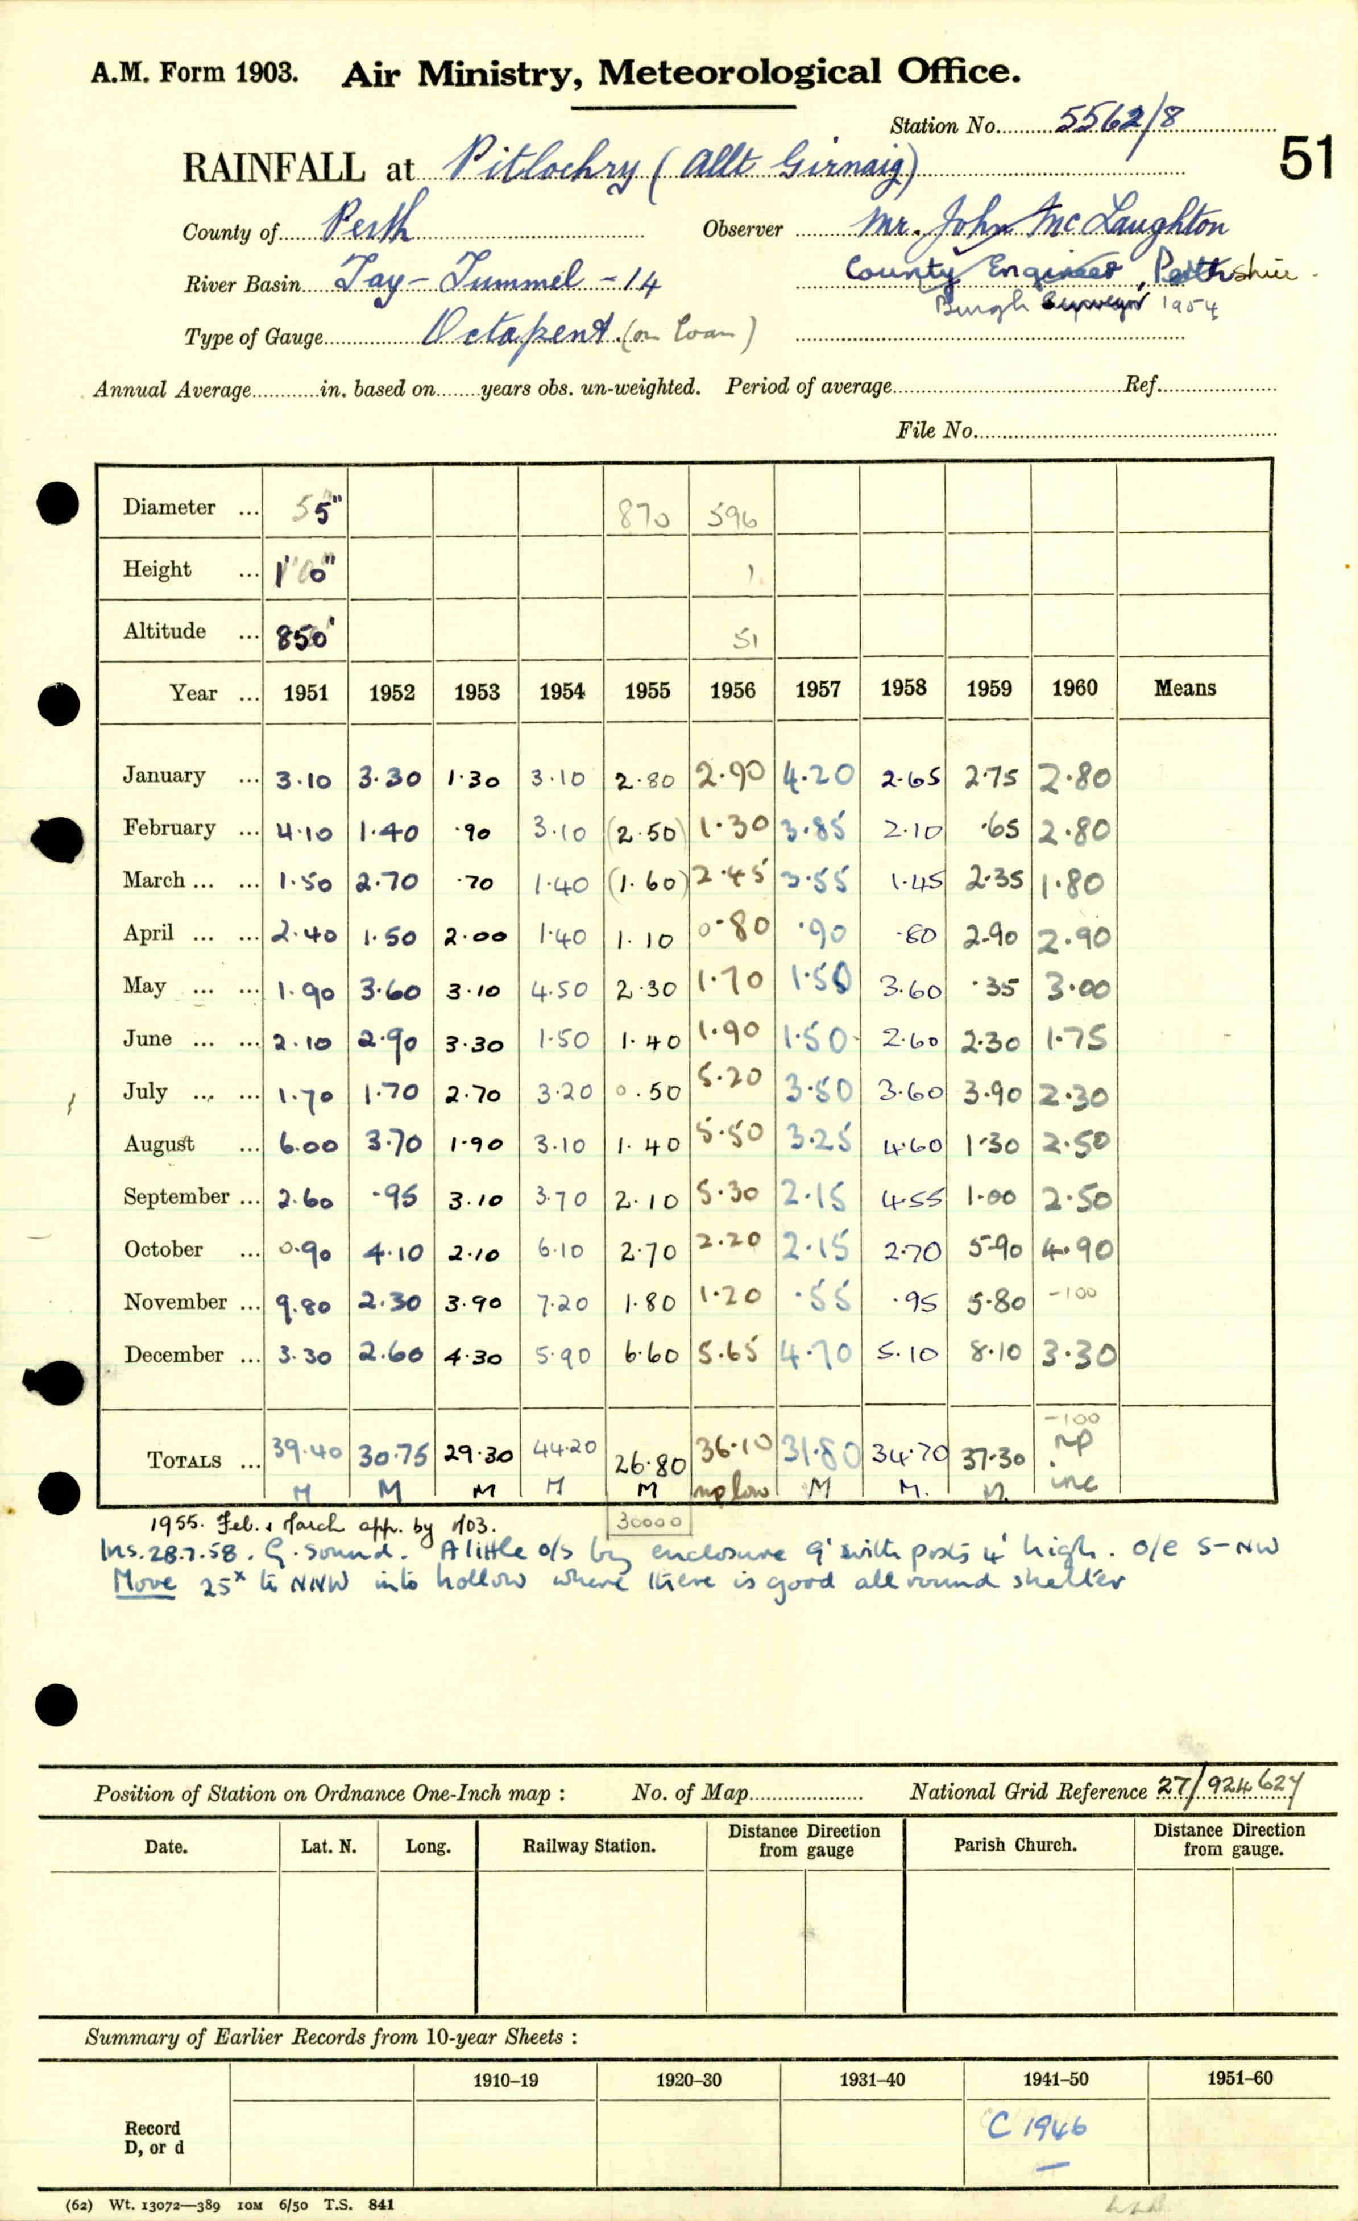 A.M. Form 1903. Air Ministry, Meteorological Office.
Station No. 5562/8
51
RAINFALL at Pitlochry (Allt Girnaig)
County of Perth Observer Mr. John McLaughton
River Basin Tay - Tummel - 14 County Engineer, Perthshire.
Burgh Surveyor 1954
Type of Gauge Octapent. (on loan)
Annual Average in. based on years obs. un-weighted. Period of average Ref.
File No.
Diameter ... 5" 870 596
Height ... 1' 0" 1
Altitude ... 850' 51
Year ... 1951 1952 1953 1954 1955 1956 1957 1958 1959 1960 Means
January ... 3.10 3.30 1.30 3.10 2.80 2.90 4.20 2.65 2.75 2.80
February ... 4.10 1.40 .90 3.10 (2.50) 1.30 3.85 2.10 .65 2.80
March ... ... 1.50 2.70 .70 1.40 (1.60) 2.45 3.55 1.45 2.35 1.80
April ... ... 2.40 1.50 2.00 1.40 1.10 0.80 .90 .80 2.90 2.90
May ... ... 1.90 3.60 3.10 4.50 2.30 1.70 1.50 3.60 .35 3.00
June ... ... 2.10 2.90 3.30 1.50 1.40 1.90 1.50 2.60 2.30 1.75
July ... ... 1.70 1.70 2.70 3.20 0.50 5.20 3.50 3.60 3.90 2.30
August ... 6.00 3.70 1.90 3.10 1.40 5.50 3.25 4.60 1.30 2.50
September ... 2.60 .95 3.10 3.70 2.10 5.30 2.15 4.55 1.00 2.50
October ... 0.90 4.10 2.10 6.10 2.70 2.20 2.15 2.70 5.90 4.90
November ... 9.80 2.30 3.90 7.20 1.80 1.20 .55 .95 5.80 -100
December ... 3.30 2.60 4.30 5.90 6.60 5.65 4.70 5.10 8.10 3.30
-100
TOTALS ... 39.40 30.75 29.30 44.20 26.80 36.10 31.80 34.70 37.30 np
M M M M M np low M M. M. inc
1955. Feb. & March app. by M03. 30000
Ins. 28.7.58. G. sound. A little o/s by enclosure 9' with posts 4' high. o/e S-NW
Move 25x to NNW into hollow where there is good all round shelter
Position of Station on Ordnance One-Inch map : No. of Map National Grid Reference 27/924627
Date. Lat. N. Long. Railway Station. Distance from Direction gauge Parish Church. Distance from Direction gauge.
Summary of Earlier Records from 10-year Sheets :
1910–19 1920–30 1931–40 1941–50 1951–60
Record D, or d C 1946
(62) Wt. 13072—389 10M 6/50 T.S. 841